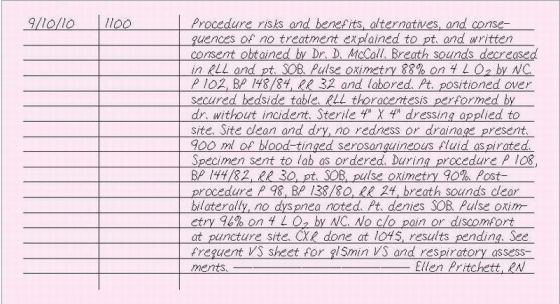 9/10/10 1100 Procedure risks and benefits, alternatives, and conse-
quences of no treatment explained to pt. and written
consent obtained by Dr. D. McCall. Breath sounds decreased
in RLL and pt. SOB. Pulse oximetry 88% on 4 L O₂ by NC.
P 102, BP 148/84, RR 32 and labored. Pt. positioned over
secured bedside table. RLL thoracentesis performed by
dr. without incident. Sterile 4" X 4" dressing applied to
site. Site clean and dry, no redness or drainage present.
900 ml of blood-tinged serosanguineous fluid aspirated.
Specimen sent to lab as ordered. During procedure P 108,
BP 144/82, RR 30, pt. SOB, pulse oximetry 90%. Post-
procedure P 98, BP 138/80, RR 24, breath sounds clear
bilaterally, no dyspnea noted. Pt. denies SOB. Pulse oxim-
etry 96% on 4 L O₂ by NC. No c/o pain or discomfort
at puncture site. CXR done at 1045, results pending. See
frequent VS sheet for q15min VS and respiratory assess-
ments. ———————————— Ellen Pritchett, RN